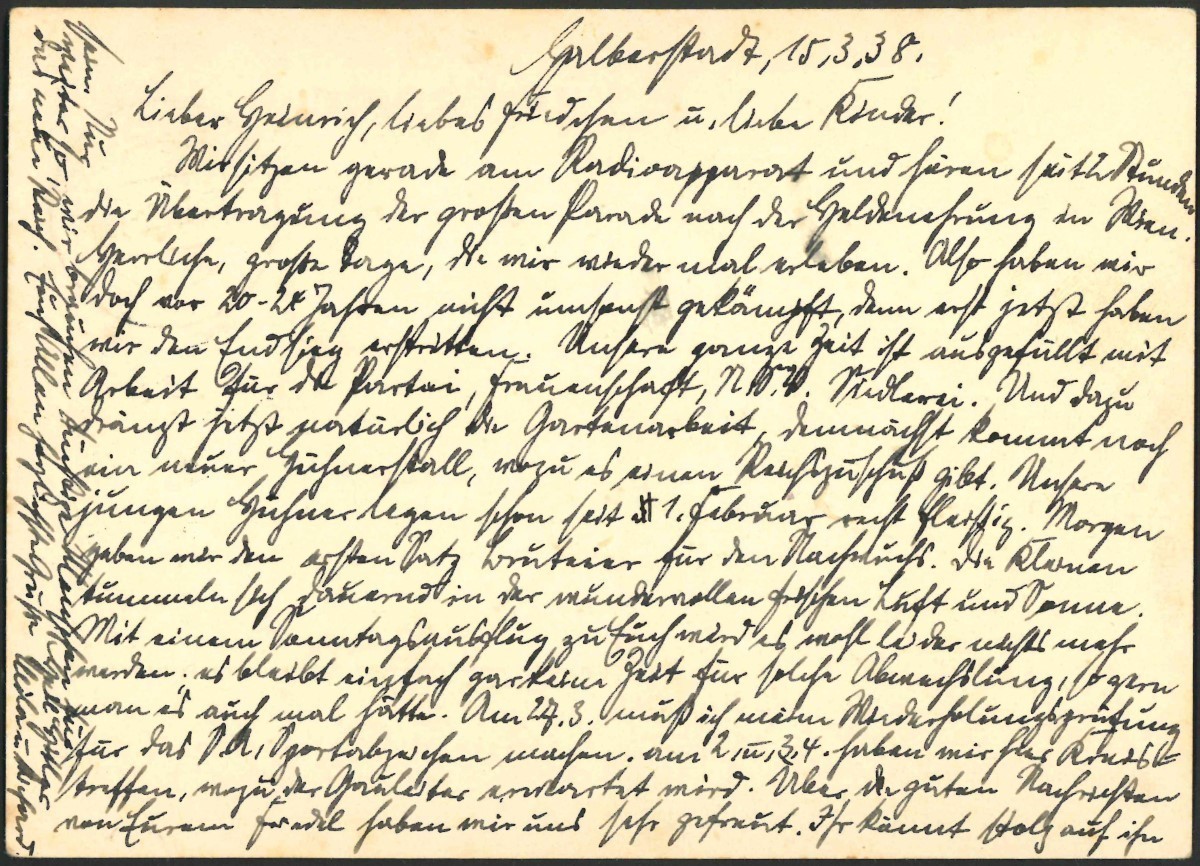 Halberstadt, 15.3.38.
Lieber Heinrich, liebes Friedchen u. liebe Kinder!
Wir sitzen gerade am Radioapparat und hören seit 2 Stunden
die Übertragung der großen Parade nach der Heldenehrung in Wien.
Herrliche, große Tage, die wir wieder mal erleben. Also haben wir
doch vor 20-24 Jahren nicht umsonst gekämpft, denn erst jetzt haben
wir den Endsieg erstritten. Unsere ganze Zeit ist ausgefüllt mit
Arbeit für die Partei, Frauenschaft, N.S.V. Siedlerei. Und dazu
drängt jetzt natürlich die Gartenarbeit, demnächst kommt noch
ein neuer Hühnerstall, wozu es einen Reichszuschuß gibt. Unsere
jungen Hühner legen schon seit 1. Februar recht fleißig. Morgen
geben wir den ersten Satz Bruteier für den Nachwuchs. Die Kleinen
tummeln sich dauernd in der wundervollen frischen Luft und Sonne.
Mit einem Sonntagsausflug zu Euch wird es wohl leider nichts mehr
werden. es bleibt einfach gar keine Zeit für solche Abwechslung, so gern
man es auch mal hätte. Am 27.3. muß ich meine Wiederholungsprüfung
für das S.A. Sportabzeichen machen. am 2. u. 3.4. haben wir hier Kreis-
treffen, wozu der Gauleiter erwartet wird. Über die guten Nachrichten
von Eurem Friedel haben wir uns sehr gefreut. Ihr könnt stolz auf ihn
sein. Nur weiter so, wir brauchen tüchtige Menschen
Euch Allen herzlichste Grüße